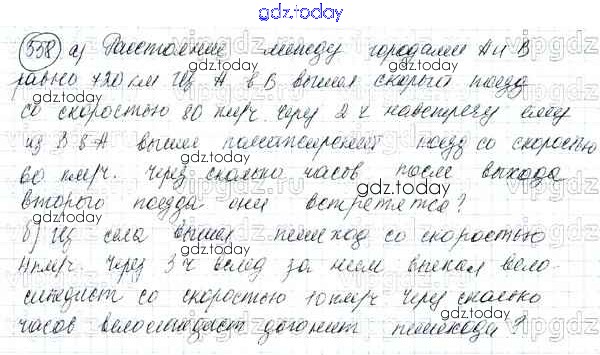 gdz.today
558 а) Расстояние между городами А и В
gdz.today
равно 720 км из А в В вышел скорый поезд
gdz.today
со скоростью 80 км/ч. Через 2 ч навстречу ему
gdz.today
из В в А вышел пассажирский поезд со скоростью
gdz.today
60 км/ч. Через сколько часов после выхода
gdz.today
второго поезда они встретятся?
gdz.today
б) Из села вышел пешеход со скоростью
gdz.today
4 км/ч. Через 3 ч вслед за ним выехал вело-
gdz.today
сипедист со скоростью 10 км/ч Через сколько
gdz.today
часов велосипедист догонит пешехода?
gdz.today